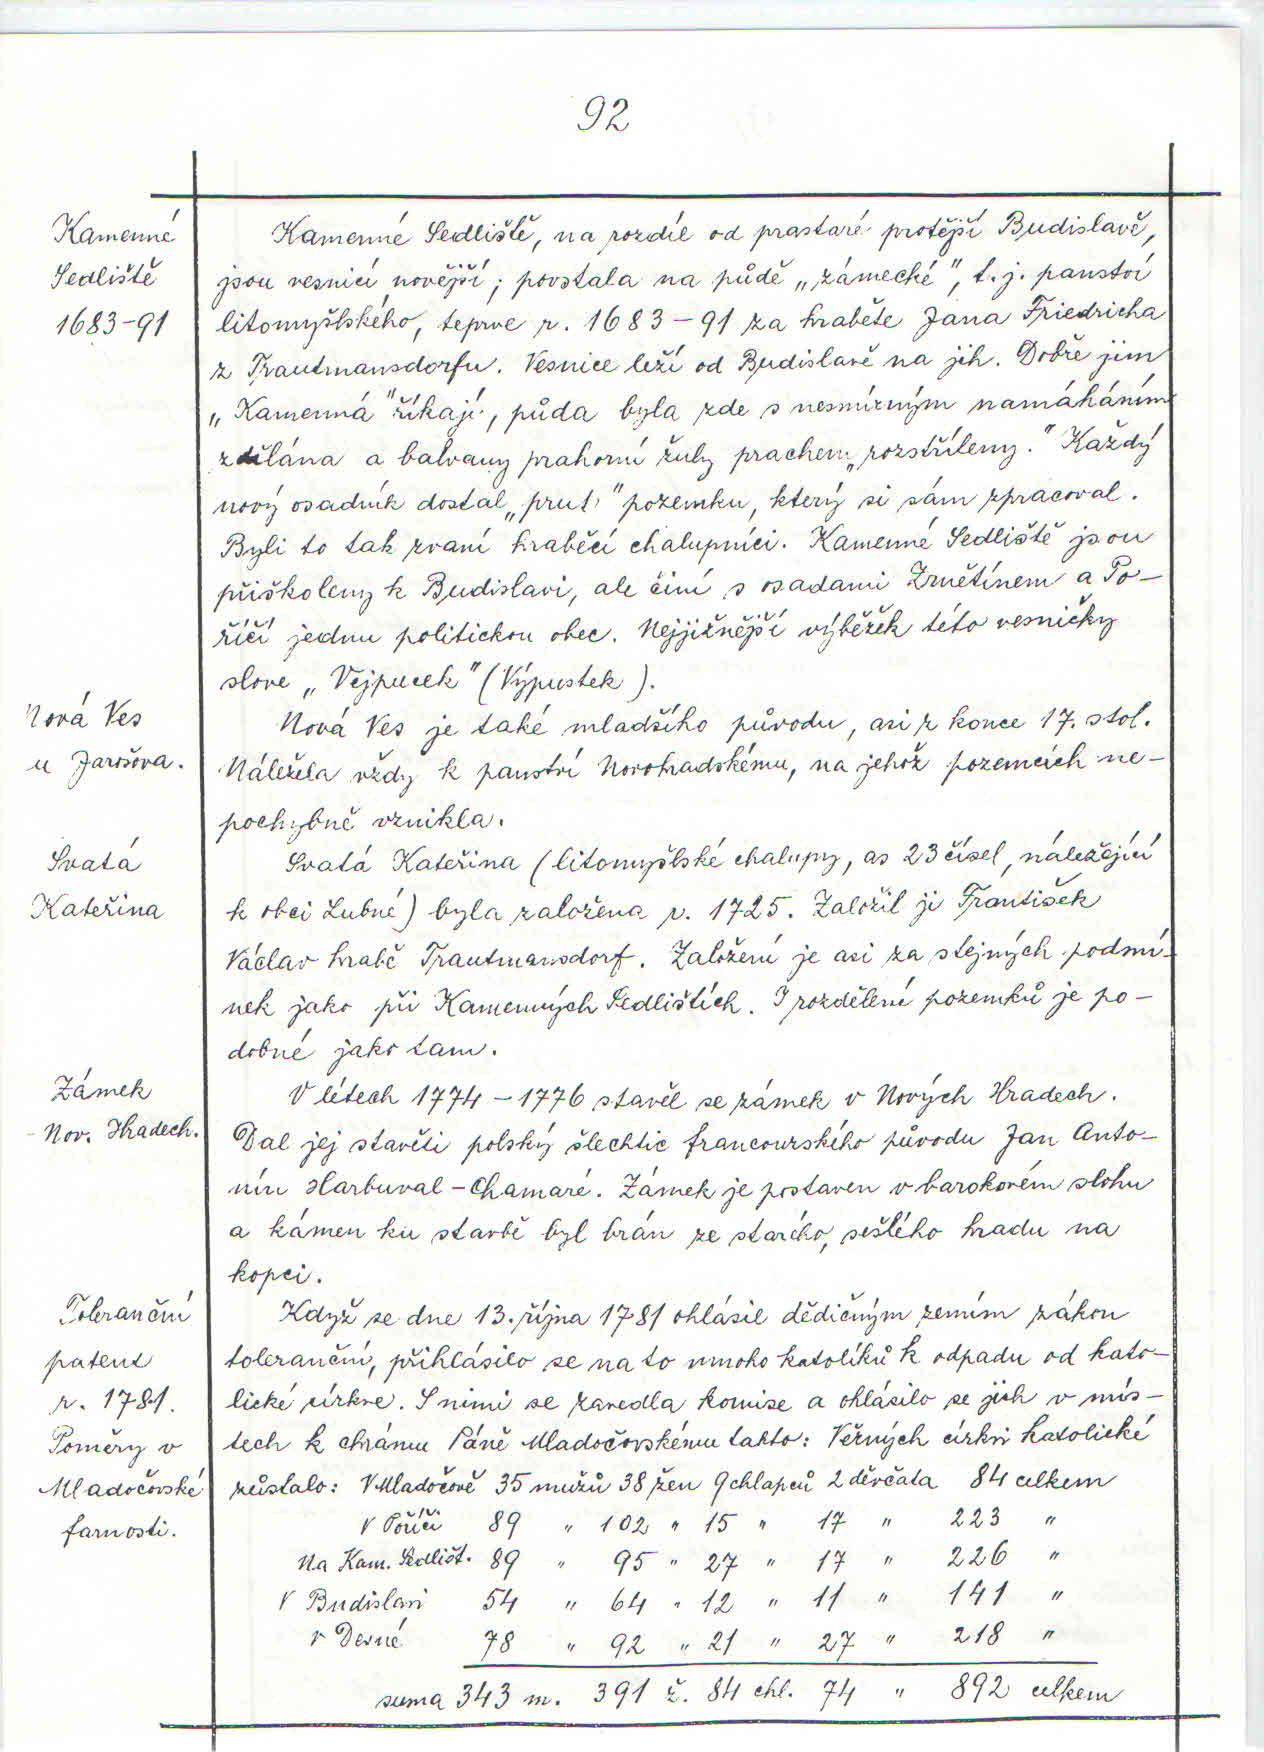 92
Kamenné
Sedliště
1683-91
Kamenné Sedliště, na rozdíl od prastaré protější Budislavě,
jsou vesnicí novější; povstala na půdě „zámecké", t.j. panství
litomyšlského, teprve r. 1683-91 za hraběte Jana Friedricha
z Trautmansdorfu. Vesnice leží od Budislavě na jih. Dobře jim
„Kamenná" říkají, půda byla zde s nesmírným namáháním
zdělána a balvany prahorní žuly prachem „rozstříleny." Každý
nový osadník dostal „prut" pozemku, který si sám zpracoval.
Byli to tak zvaní hraběcí chalupníci. Kamenné Sedliště jsou
přiškoleny k Budislavi, ale činí s osadami Zrnětínem a Po-
říčí jednu politickou obec. Nejjižnější výběžek této vesničky
slove „Vejpucek" (Výpustek).
Nová Ves
u Jarošova.
Nová Ves je také mladšího původu, asi z konce 17. stol.
Náležela vždy k panství Novohradskému, na jehož pozemcích ne-
pochybně vznikla.
Svatá
Kateřina
Svatá Kateřina (litomyšlské chalupy, as 23 čísel, náležející
k obci Lubné) byla založena r. 1725. Založil ji František
Václav hrabě Trautmansdorf. Založení je asi za stejných podmí-
nek jako při Kamenných Sedlištích. I rozdělení pozemků je po-
dobné jako tam.
Zámek
Nov. Hradech.
V létech 1774-1776 stavěl se zámek v Nových Hradech.
Dal jej stavěti polský šlechtic francouzského původu Jan Anto-
nín Harbuval-Chamaré. Zámek je postaven v barokovém slohu
a kámen ku stavbě byl brán ze starého, sešlého hradu na
kopci.
Toleranční
patent
r. 1781.
Poměry v
Mladočovské
farnosti.
Když se dne 13. října 1781 ohlásil dědičným zemím zákon
toleranční, přihlásilo se na to mnoho katolíků k odpadu od kato-
lické církve. S nimi se zavedla komise a ohlásilo se jich v mís-
tech k chrámu Páně Mladočovskému takto: Věrných církvi katolické
zůstalo: V Mladočově 35 mužů 38 žen 9 chlapců 2 děvčata 84 celkem
V Poříčí 89 " 102 " 15 " 17 " 223 "
Na Kam. Sedlišt. 89 " 95 " 27 " 17 " 226 "
V Budislavi 54 " 64 " 12 " 11 " 141 "
v Desné 78 " 92 " 21 " 27 " 218 "
suma 343 m. 391 ž. 84 chl. 74 " 892 celkem